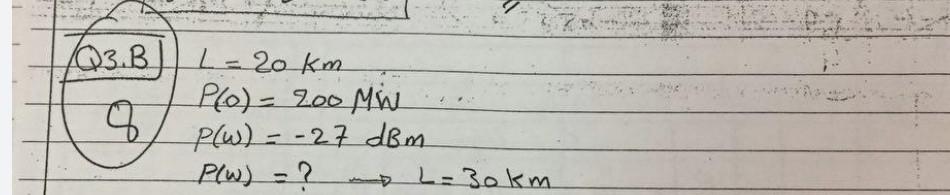 Q3.B
L = 20 km
P(0) = 200 MW
8
P(w) = -27 dBm
P(w) = ? → L = 30 km